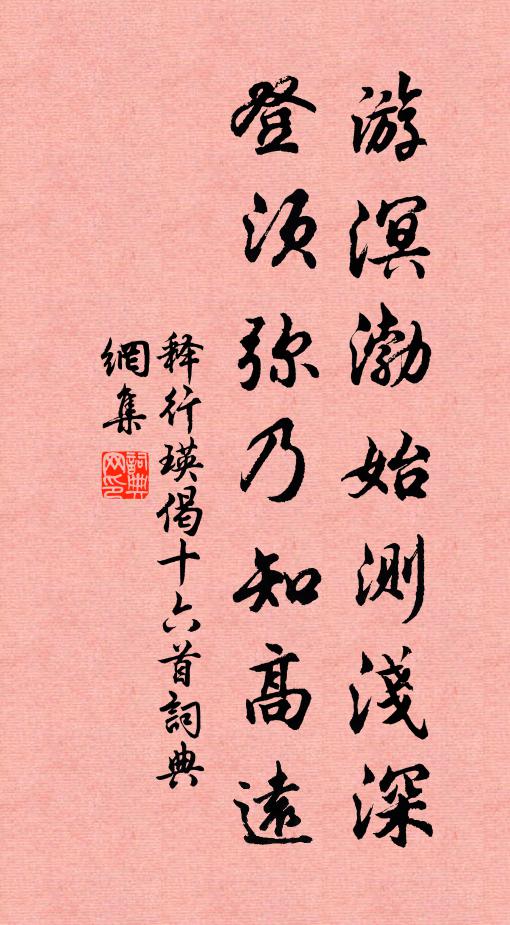 游溟渤始測淺深
登須弥乃知高遠
释行瑛偈十六首詞典
網集
詞典网印